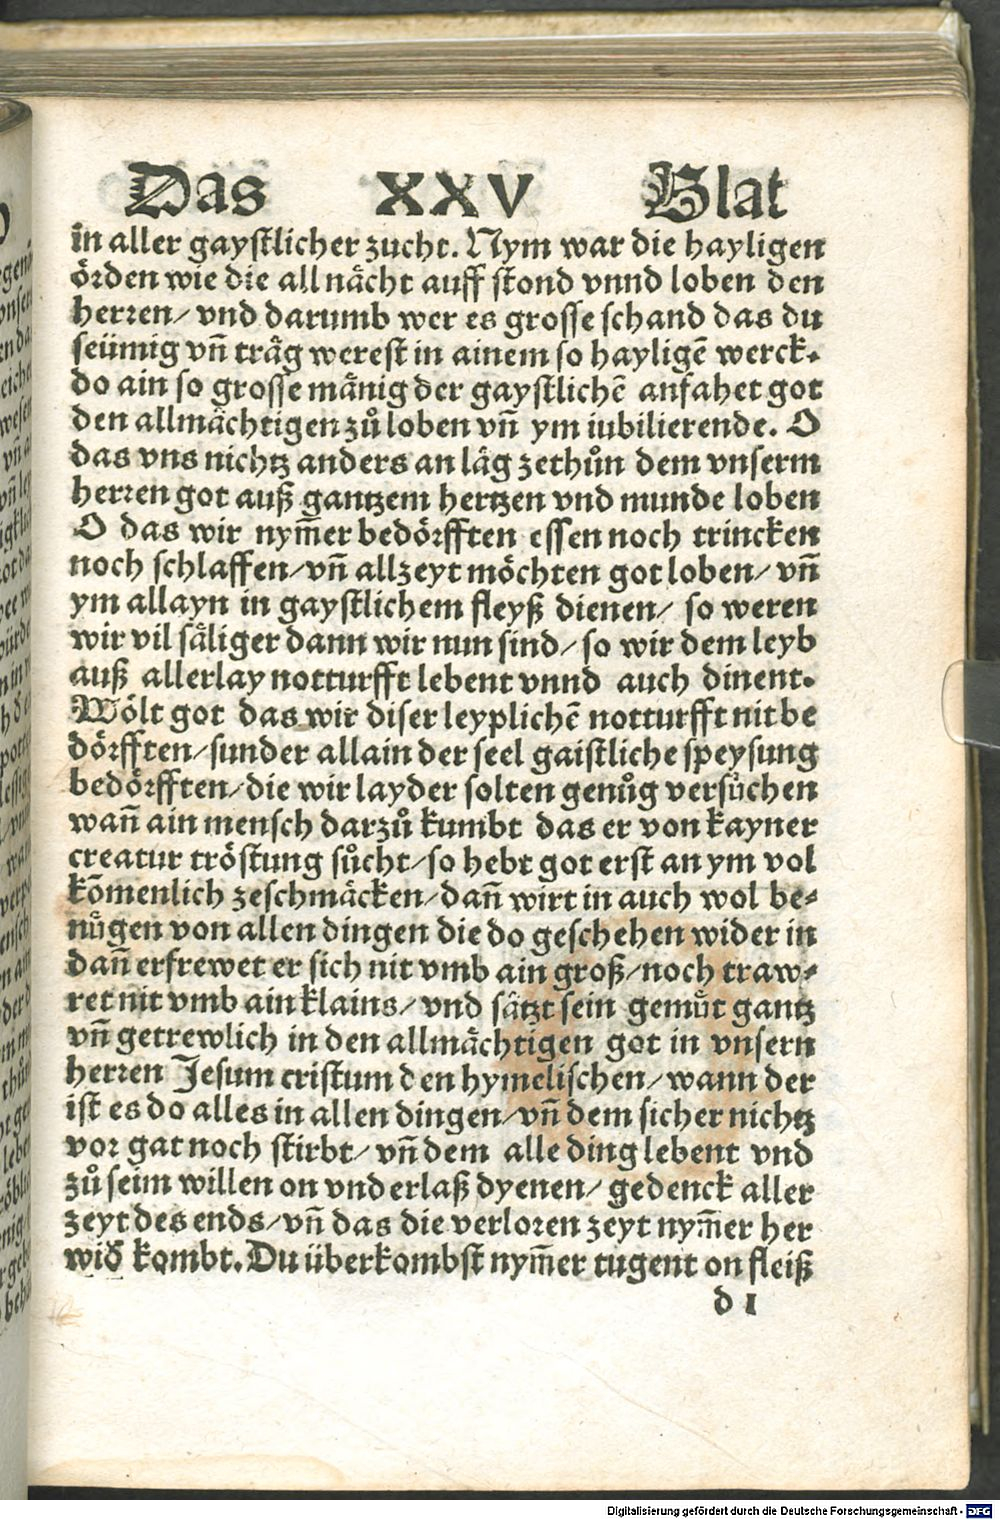 Das XXV Blat
in aller gaystlicher zucht. Nym war die hayligen
örden wie die all nächt auff stond vnnd loben den
herren/ vnd darumb wer es grosse schand das du
seümig vñ träg werest in ainem so hayligẽ werck.
do ain so grosse mänig der gaystlichẽ anfahet got
den allmächtigen zů loben vñ ym iubilierende. O
das vns nichtz anders an läg zethůn dem vnserm
herren got auß gantzem hertzen vnd munde loben
O das wir nym̃er bedörfften essen noch trincken
noch schlaffen/ vñ allzeyt möchten got loben/ vñ
ym allayn in gaystlichem fleyß dienen/ so weren
wir vil säliger dann wir nun sind/ so wir dem leyb
auß allerlay notturfft lebent vnnd auch dinent.
Wölt got das wir diser leyplichẽ notturfft nit be
dörfften/ sunder allain der seel gaistliche speysung
bedörfften/ die wir layder solten genůg versůchen
wañ ain mensch darzů kumbt das er von kayner
creatur tröstung sůcht/ so hebt got erst an ym vol
kõmenlich zeschmäcken/ dañ wirt in auch wol be-
nůgen von allen dingen die do geschehen wider in
dañ erfrewet er sich nit vmb ain groß/ noch traw-
ret nit vmb ain klains/ vnd sätzt sein gemůt gantz
vñ getrewlich in den allmächtigen got in vnsern
herren Jesum cristum den hymelischen/ wann der
ist es do alles in allen dingen/ vñ dem sicher nichtz
vor gat noch stirbt/ vñ dem alle ding lebent vnd
zů seim willen on vnderlaß dyenen/ gedenck aller
zeyt des ends/ vñ das die verloren zeyt nym̃er her
wid̃ kombt. Du überkombst nym̃er tugent on fleiß
d 1
Digitalisierung gefördert durch die Deutsche Forschungsgemeinschaft - DFG